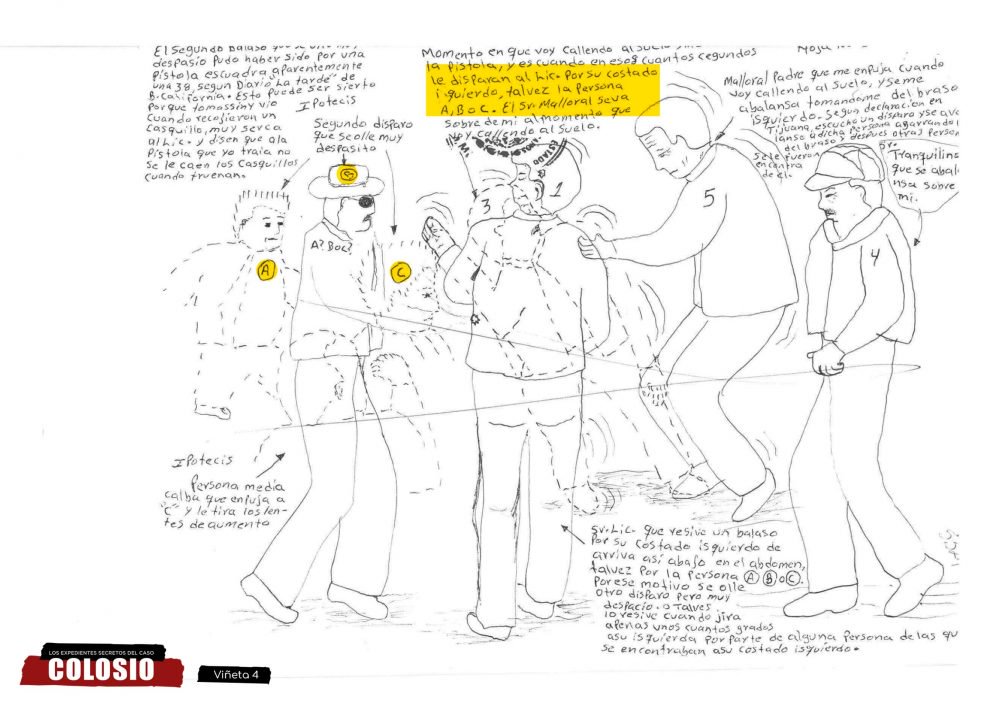 El segundo balaso que se
despasio pudo haber sido por una
pistola escuadra aparentemente
una 38, segun Diario La tarde" de
B. California. Esto puede ser sierto
porque tomassiny vio
cuando recojieron un
casquillo, muy serca
al Lic. y disen que ala
Pistola que yo traia no
se le caen los casquillos
cuando truenan.
Ipotecis
Segundo disparo
que se olle muy
despasito
Momento en que voy callendo al suelo
la pistola, y es cuando en esos cuantos cegundos
le disparan al Lic. Por su costado
isquierdo, talvez la Persona
A, B o C. El Sr. Malloral seva
sobre de mi al momento que
voy callendo al suelo.
Malloral padre que me enpuja cuando
voy callendo al suelo, y se me
abalansa tomandome del braso
isquierdo. Segun declaracion en
Tijuana, escucho un disparo y se ava
lanso a dicha persona agarrando l
del braso y despues otras person
se le fueron
encontra
de el.
Sr.
Tranquilins
que se abal
nsa sobre
mi.
ESTADO
1
3
5
4
A? B o C?
A
C
Ipotecis
Persona media
calba que enpuja a
"C" y le tira los len-
tes de aumento
Sr. Lic. que resive un balaso
Por su costado isquierdo de
arriva asi abajo en el abdomen,
talvez Por la Persona A B o C.
Por ese motivo se olle
otro disparo pero muy
despacio. o Talves
lo resive cuando jira
apenas unos cuantos grados
asu isquierda por parte de alguna persona de las qu
se encontraban asu costado isquierdo.
LOS EXPEDIENTES SECRETOS DEL CASO
COLOSIO
Viñeta 4